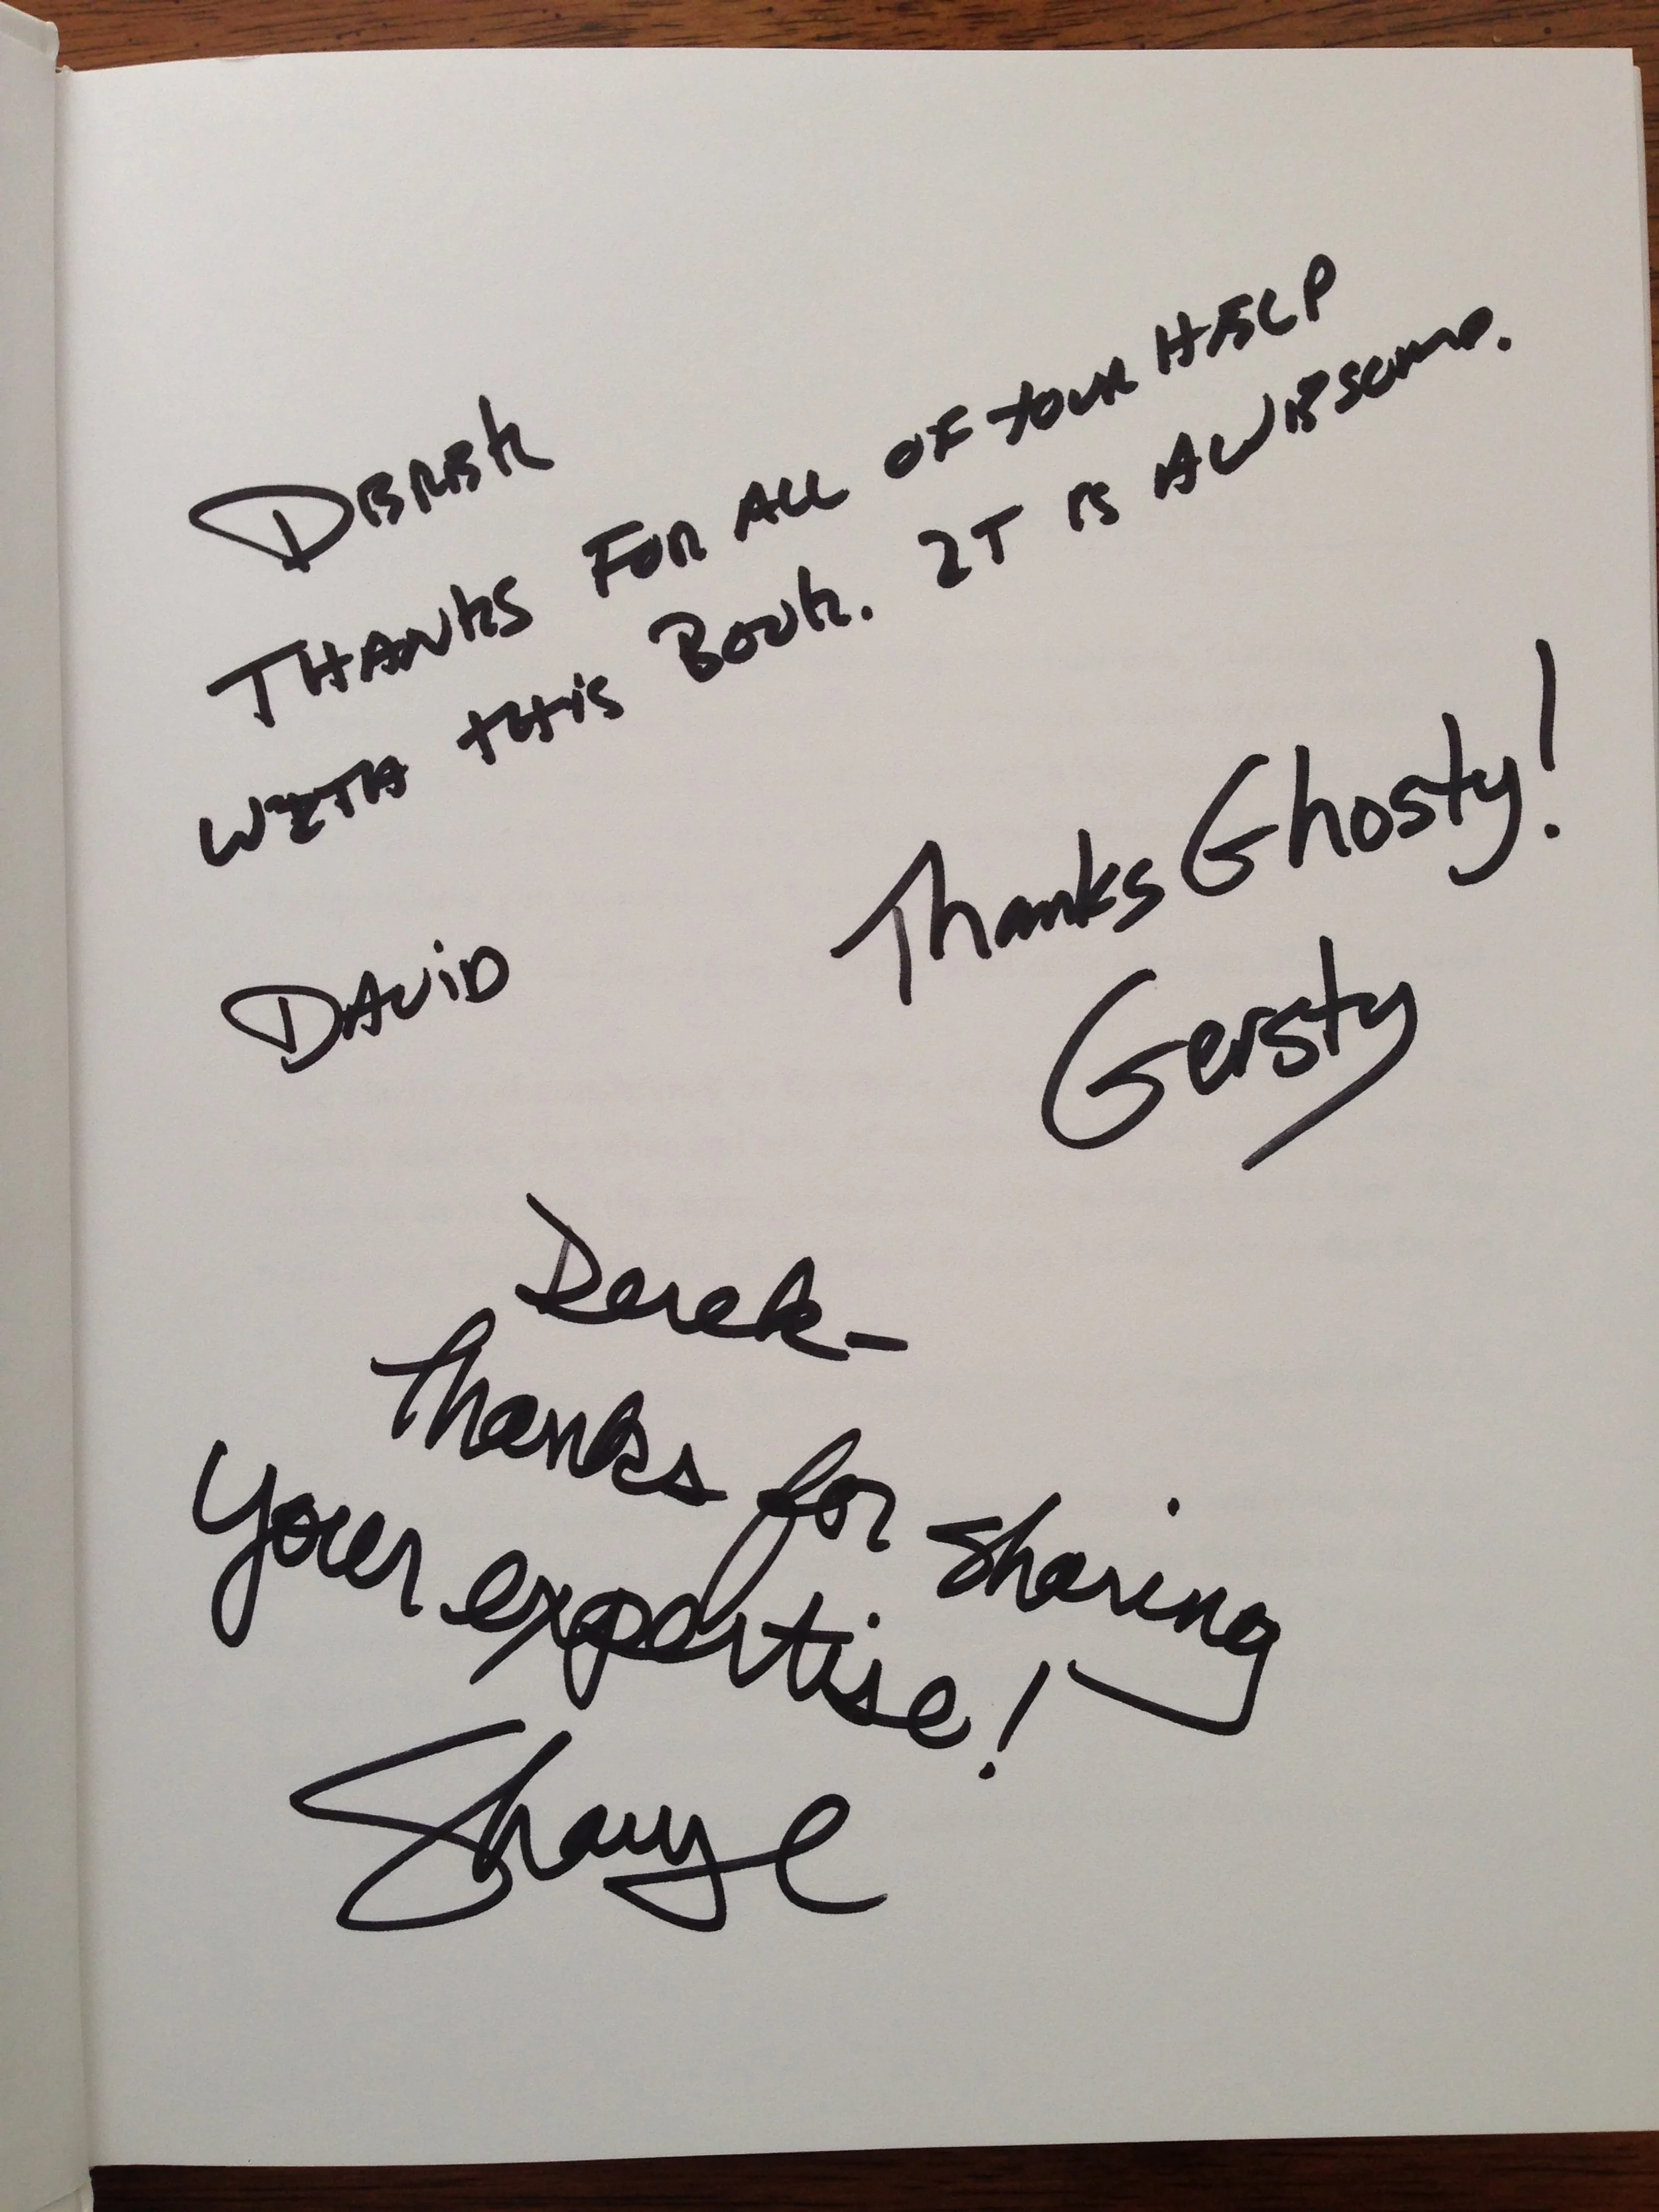 DEREK
THANKS FOR ALL OF YOUR HELP
WITH THIS BOOK. IT IS AWESOME.
DAVID
Thanks Ghosty!
Gersty
Derek-
Thanks for sharing
your expertise!
Shaye